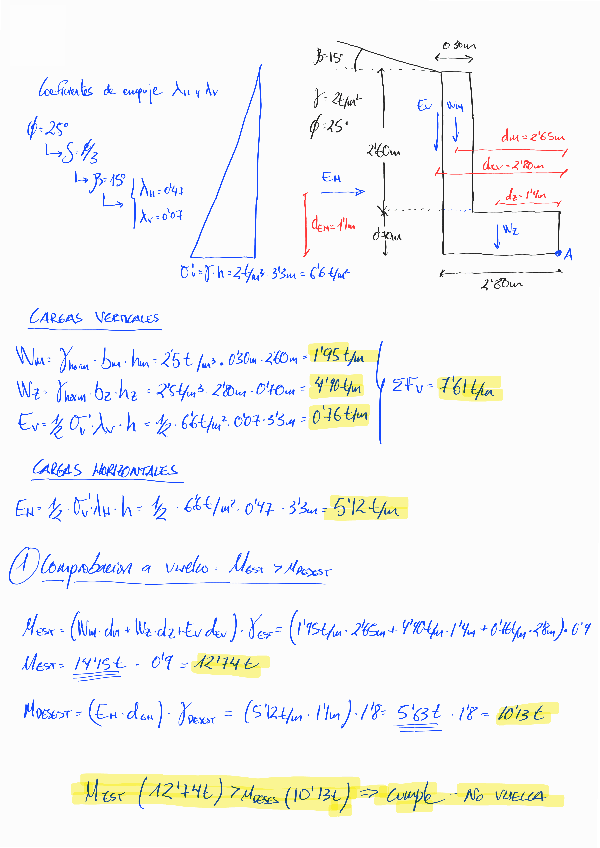 Coeficientes de empuje λH y λV
ϕ=25°
↳ δ=ϕ/3
↳ β=15°
↳ { λH=0'47
λV=0'07
σ'v=γ·h=2t/m³·3'3m=6'6t/m²
β=15°
γ=2t/m²
ϕ=25°
EH
dEH=1'1m
2'60m
0'70m
0'30m
EV WM
dM=2'65m
dEV=2'80m
dZ=1'4m
WZ
A
2'80m
CARGAS VERTICALES
WM=γhorm·bm·hm=2'5t/m³·0'30m·2'60m=1'95t/m
WZ=γhorm·bZ·hZ=2'5t/m³·2'80m·0'70m=4'90t/m
EV=1/2 σ'v·λV·h=1/2·6'6t/m²·0'07·3'3m=0'76t/m
ΣFV=7'61t/m
CARGAS HORIZONTALES
EH=1/2·σ'v·λH·h=1/2·6'6t/m²·0'47·3'3m=5'12t/m
① Comprobacion a vuelco. MEST>MDESEST
MEST=(WM·dM+WZ·dZ+EV·dEV)·γEST=(1'95t/m·2'65m+4'90t/m·1'4m+0'76t/m·2'8m)·0'9
MEST=14'15t·0'9=12'74t
MDESEST=(EH·dEH)·γDESEST=(5'12t/m·1'1m)·1'8=5'63t·1'8=10'13t
MEST(12'74t)>MDESES(10'13t) ⇒ cumple - NO VUELCA